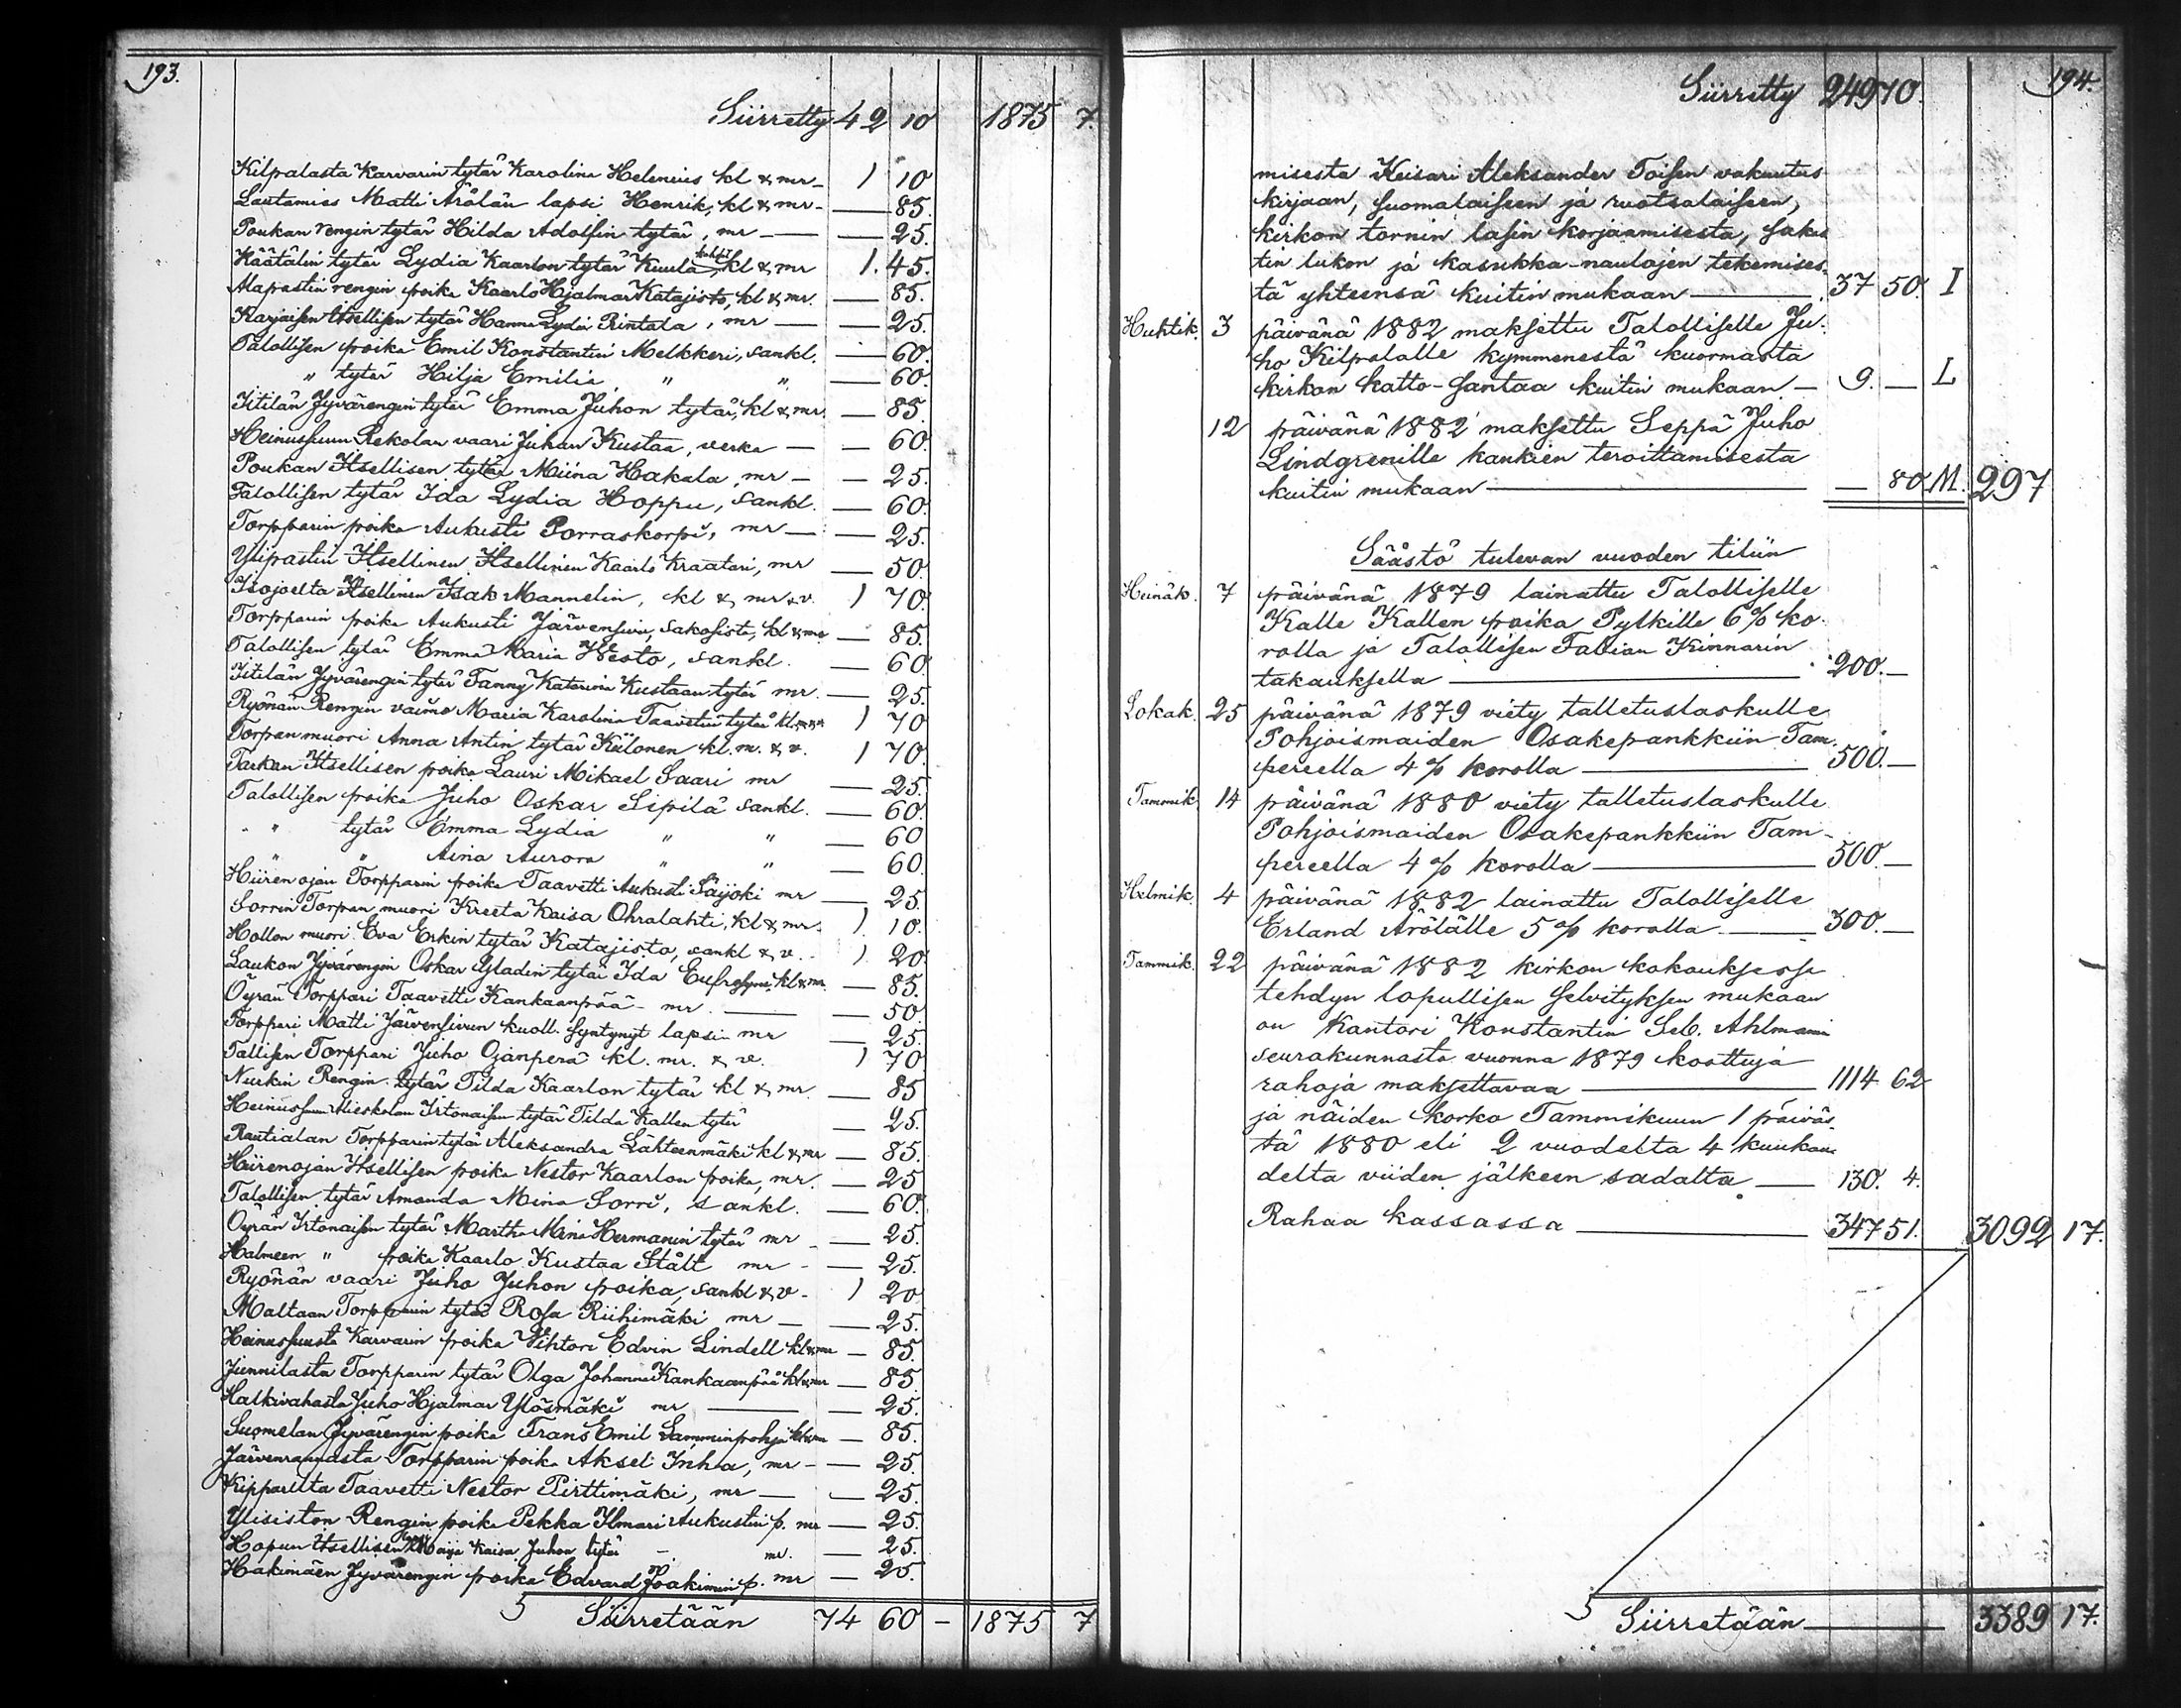 193.
Siirretty 42 10 1875 7.
Kilpalasta Karvarin tytär Karolina Helenius kl & mr - 1 10
Lautamies Matti Ärölän lapsi Henrik, kl & mr - — 85.
Poukan rengin tytär Hilda Adolfin tytär, mr — — 25.
Käätälin tytär Lydia Kaarlon tytär Kuula kl & mr 1. 45.
Alapastin rengin poika Kaarlo Hjalmar Katajisto, kl & mr. — 85.
Karjaisen Itsellisen tytär Hanna Lydia Rintala, mr — — 25.
Talollisen poika Emil Konstantin Melkkeri, sankl. — 60.
" tytär Hilja Emilia " " — 60.
Iitilän Jyvärengin tytär Emma Juhon tytär, kl & mr. — 85.
Heinussuun Rekolan vaari Juhan Kustaa, verka — — 60.
Poukan Itsellisen tytär Miina Hakala, mr — — 25.
Talollisen tytär Ida Lydia Hoppu, sankl. — 60.
Torpparin poika Aukusti Porraskorpi, mr — — 25.
Ylipastin Itsellinen Itsellinen Kaarlo Kraatari, mr — 50.
Isojoelta Itsellinen Isak Mannelin, kl & mr & v. 1 70.
Torpparin poika Aukusti Järvensivu, Sakosista, kl & mr — 85.
Talollisen tytär Emma Maria Hesto, sankl. — 60
Iitilän Jyvärengin tytär Fanny Katarina Kustaan tytär mr. — 25.
Ryönän Rengin vaimo Maria Karolina Taavetin tytär kl. m. & v. 1 70
Torpan muori Anna Antin tytär Kiilonen kl. m. & v. 1 70.
Tarkan Itsellisen poika Lauri Mikael Saari mr — 25.
Talollisen poika Juho Oskar Sipilä sankl. — 60.
" " tytär Emma Lydia " " — 60
" " Aina Aurora " " — 60.
Hiirenojan Torpparin poika Taavetti Aukusti Säijoki mr — 25.
Sorrin Torpan muori Kreeta Kaisa Ohralahti, kl & mr. 1. 10.
Hollon muori Eva Erkin tytär Katajisto, sankl & v. - 1 20.
Laukon Jyvärengin Oskar Gladin tytär Ida Eufrosyne, kl & mr. — 85.
Öyrän Torppari Taavetti Kankaanpää - mr. — — 50.
Torppari Matti Järvensivun kuoll. syntynyt lapsi mr — 25.
Tallisen Torppari Juho Ojanperä kl. mr. & v. 1 70
Nurkin Rengin tytär Tilda Kaarlon tytär kl & mr. — 85
Heinussuun Alieskolan Irtonaisen tytär Tilda Kallen tytär — 25.
Rautialan Torpparin tytär Aleksandra Lähteenmäki kl & mr — 85.
Hiirenojan Itsellisen poika Nestor Kaarlon poika, mr. — 25
Talollisen tytär Amanda Mina Sorri, sankl. — 60.
Öyrän Irtonaisen tytär Martha Mina Hermanin tytär mr — 25.
Halmeen " poika Kaarlo Kustaa Stålt mr - — 25.
Ryönän vaari Juho Juhon poika, sankl & v - 1 20
Maltaan Torpparin tytär Rosa Riihimäki mr — — 25.
Heinussuusta Karvarin poika Vihtori Edvin Lindell kl & mr — 85.
Junnilasta Torpparin tytär Olga Johanna Kankaanpää kl & mr — 85
Halkivahasta Juho Hjalmar Ylösmäki mr — — 25.
Suomelan Jyvärengin poika Frans Emil Lamminpohja kl & mr — 85.
Järvenrannasta Torpparin poika Aksel Inha, mr - — 25.
Kipparilta Taavetti Nestor Pirttimäki, mr — — 25.
Ylisiston Rengin poika Pekka Ilmari Aukustin p. mr — 25.
Hopun Itsellisen Maija Kaisa Juhon tytär - mr. — 25.
Hakimäen Jyvärengin poika Edvard Joakimin p. mr — 25.
Siirretään 74 60 - 1875 7
194.
Siirretty 249 70.
misesta Keisari Aleksander Toisen vakuutus
kirjaan, suomalaiseen ja ruotsalaiseen,
kirkon tornin lasin korjaamisesta, sakas
tin lukon ja kasukka-naulojen tekemises-
tä yhteensä kuitin mukaan — 37 50. I
Huhtik. 3 päivänä 1882 maksettu Talolliselle Ju-
ho Kilpalalle kymmenestä kuormasta
kirkon katto-santaa kuitin mukaan — 9. — L
12 päivänä 1882 maksettu Seppä Juho
Lindgrenille kankien teroittamisesta
kuitin mukaan — — 80 M. 297
Säästö tulevan vuoden tiliin
Heinäk. 7 päivänä 1879 lainattu Talolliselle
Kalle Kallen poika Pylkille 6% ko-
rolla ja Talollisen Fabian Kinnarin
takauksella — 200. —
Lokak. 25 päivänä 1879 viety talletuslaskulle
Pohjoismaiden Osakepankkiin Tam-
pereella 4% korolla — 500. —
Tammik. 14 päivänä 1880 viety talletuslaskulle
Pohjoismaiden Osakepankkiin Tam-
pereella 4% korolla — 500. —
Helmik. 4 päivänä 1882 lainattu Talolliselle
Erland Ärölälle 5% korolla — 300. —
Tammik. 22 päivänä 1882 kirkon kokouksessa
tehdyn lopullisen selvityksen mukaan
on Kantori Konstantin Seb. Ahlmanin
seurakunnasta vuonna 1879 koottuja
rahoja maksettavaa — 1114 62
ja näiden korko Tammikuun 1 päiväs-
tä 1880 eli 2 vuodelta 4 kuukau-
delta viiden jälkeen sadalta — 130. 4.
Rahaa kassassa — 347 51. 3092 17.
Siirretään — 3389 17.